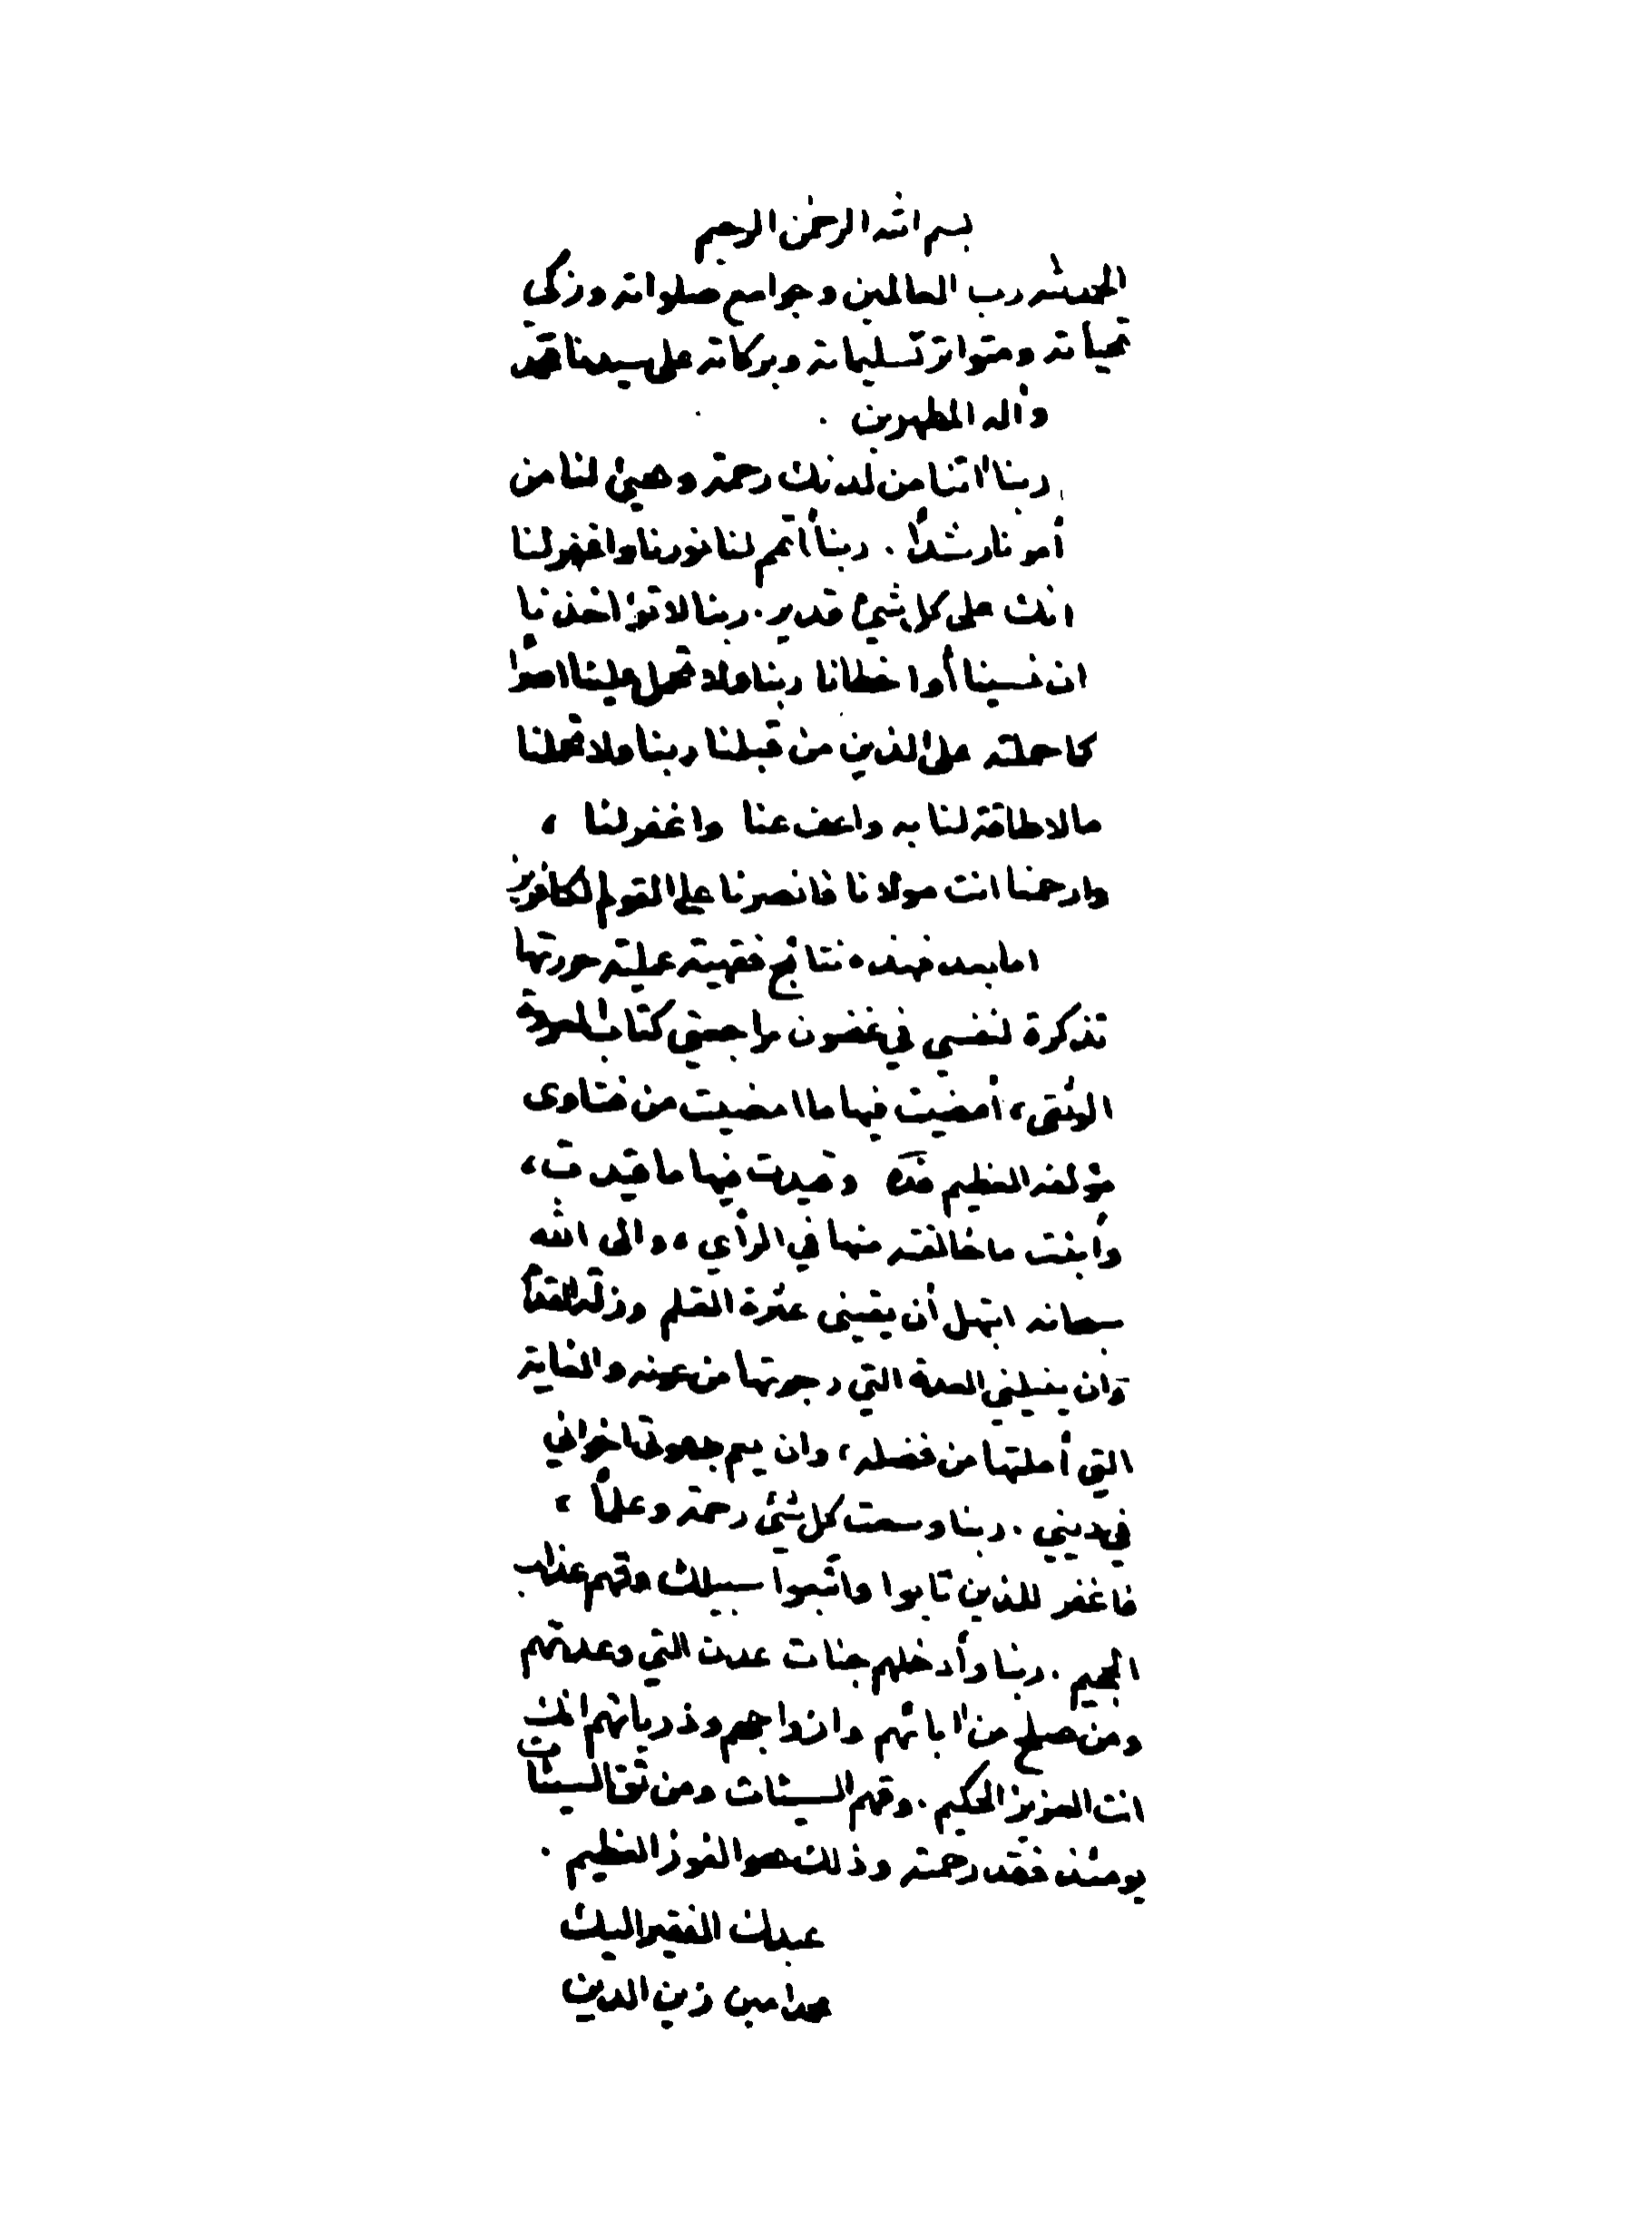 بسم الله الرحمن الرحيم
الحمد لله رب العالمين وجوامع صلواته وزكي
تحياته ومتواتر تسليماته وبركاته على سيدنا محمد
وآله المطهرين .
ربنا آتنا من لدنك رحمة وهيئ لنا من
أمرنا رشداً . ربنا أتمم لنا نورنا واغفر لنا
انك على كل شيئ قدير . ربنا لا تؤاخذنا
ان نسينا أوا خطانا ربنا ولا تحمل علينا اصراً
كما حملته على الذين من قبلنا ربنا ولا تحملنا
مالا طاقة لنا به واعف عنا واغفر لنا ،
وارحمنا انت مولانا فانصرنا على القوم الكافرين
اما بعد فهذه نتائج فقهية عملية حررتها
تذكرة لنفسي في غضون مراجعتي كتاب العروة
الوثقى ، أمضيت فيها ما امضيت من فتاوى
مؤلفه العظيم قده وقيدت فيها ما قيدت ،
وأبنت ما خالفته منها في الرأي ، والى الله
سبحانه ابتهل أن يقيني عثرة القلم وزلة القدم
وان ينيلني العدة التي رجوتها من عونه والغاية
التي أملتها من فضله ، وان يعم بدعوتي اخواني
في ديني . ربنا وسعت كل شيئ رحمة وعلماً ،
فاغفر للذين تابوا واتبعوا سبيلك وقهم عذاب
الجحيم . ربنا وأدخلهم جنات عدن التي وعدتهم
ومن صلح من آبائهم وازواجهم وذرياتهم انك
انت العزيز الحكيم . وقهم السيئات ومن تق السيئات
يومئذ فقد رحمته وذلك هو الفوز العظيم .
عبدك الفقير اليك
محمد امين زين الدين